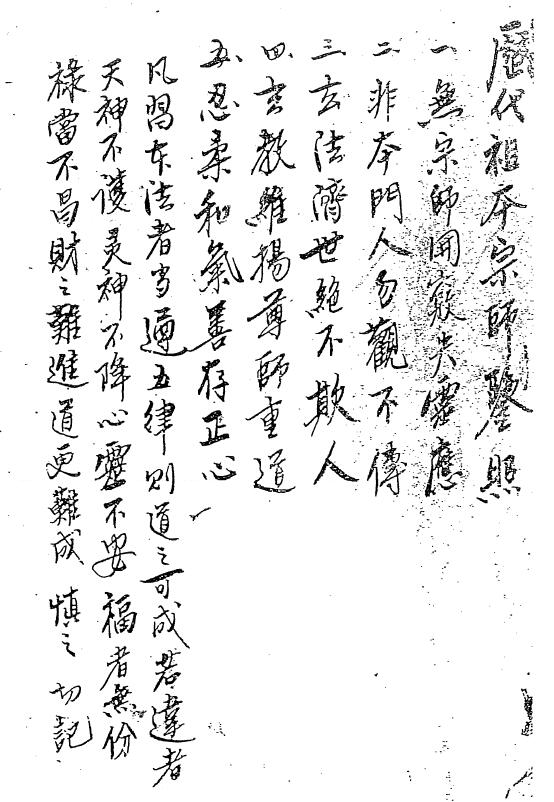 歷代祖本宗師鑒照
一、無宗師開竅失靈應
二、非本門人勿觀不傳
三、玄法濟世絕不欺人
四、玄教維揚尊師重道
五、忍柔和氣善存正心
凡習本法者当遵五律則道之可成若違者
天神不護灵神不降心靈不安福者無份
祿當不昌財之難進道更難成 慎之 切記